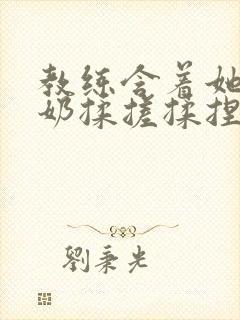 教练含着她
奶揉搓揉捏
劉秉光